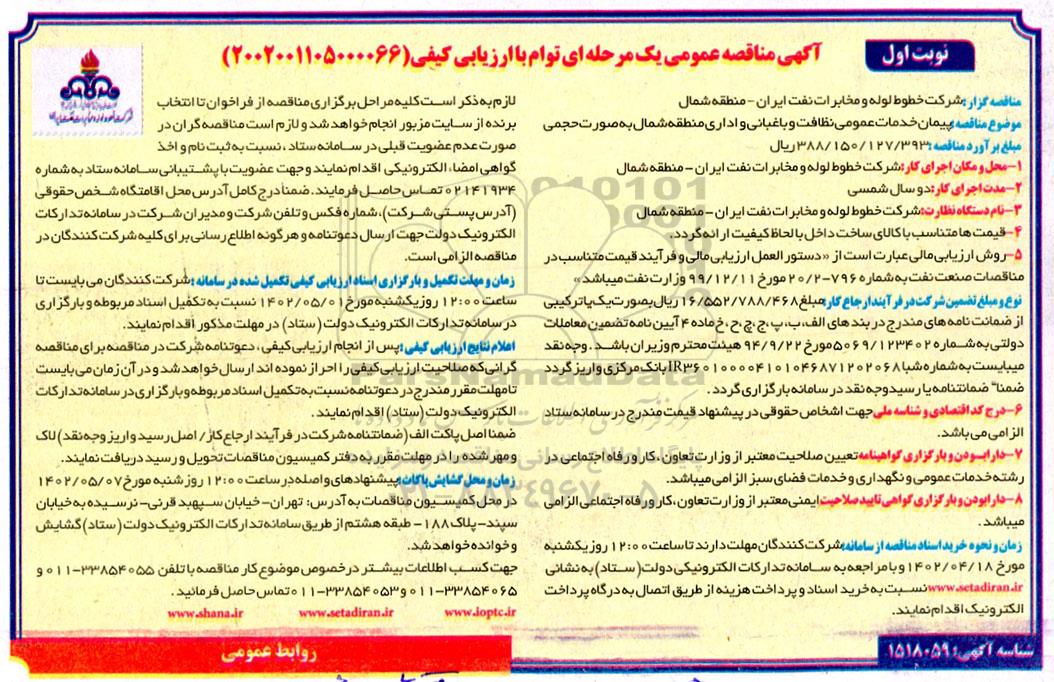 نوبت اول
آگهی مناقصه عمومی یک مرحله ای توام با ارزیابی کیفی (۲۰۰۲۰۰۱۱۰۵۰۰۰۰۶۶)
مناقصه گزار: شرکت خطوط لوله و مخابرات نفت ایران - منطقه شمال
موضوع مناقصه: پیمان خدمات عمومی نظافت و باغبانی و اداری منطقه شمال به صورت حجمی
مبلغ برآورد مناقصه: ۳۸۸/۱۵۰/۱۲۷/۳۹۳ ریال
۱- محل و مکان اجرای کار: شرکت خطوط لوله و مخابرات نفت ایران - منطقه شمال
۲- مدت اجرای کار: دو سال شمسی
۳- نام دستگاه نظارت: شرکت خطوط لوله و مخابرات نفت ایران - منطقه شمال
۴- قیمت ها متناسب با کالای ساخت داخل با لحاظ کیفیت ارائه گردد.
۵- روش ارزیابی مالی عبارت است از «دستور العمل ارزیابی مالی و فرآیند قیمت متناسب در
مناقصات صنعت نفت به شماره ۷۹۶-۲۰/۲ مورخ ۹۹/۱۲/۱۱ وزارت نفت میباشد»
نوع و مبلغ تضمین شرکت در فرآیند ارجاع کار: مبلغ ۱۶/۵۵۲/۷۸۸/۴۶۸ ریال بصورت یک یا ترکیبی
از ضمانت نامه های مندرج در بند های الف، ب، پ، ج، چ، ح، خ ماده ۴ آیین نامه تضمین معاملات
دولتی به شماره ۱۲۳۴۰۲/ت۵۰۶۹ مورخ ۹۴/۹/۲۲ هیئت محترم وزیران باشد. وجه نقد
میبایست به شماره شبا IR۳۶۰۱۰۰۰۰۴۱۰۱۰۴۶۸۷۱۲۰۲۰۶۸ بانک مرکزی واریز گردد
ضمنا" ضمانتنامه یا رسید وجه نقد در سامانه بارگزاری گردد.
۶- درج کد اقتصادی و شناسه ملی جهت اشخاص حقوقی در پیشنهاد قیمت مندرج در سامانه ستاد
الزامی می باشد.
۷- دارا بودن و بارگزاری گواهینامه تعیین صلاحیت معتبر از وزارت تعاون، کار و رفاه اجتماعی در
رشته خدمات عمومی و نگهداری و خدمات فضای سبز الزامی میباشد.
۸- دارا بودن و بارگزاری گواهی تایید صلاحیت ایمنی معتبر از وزارت تعاون، کار و رفاه اجتماعی الزامی
میباشد.
زمان و نحوه خرید اسناد مناقصه از سامانه: شرکت کنندگان مهلت دارند تا ساعت ۱۲:۰۰ روز یکشنبه
مورخ ۱۴۰۲/۰۴/۱۸ و با مراجعه به سامانه تدارکات الکترونیکی دولت (ستاد) به نشانی
www.setadiran.ir نسبت به خرید اسناد و پرداخت هزینه از طریق اتصال به درگاه پرداخت
الکترونیک اقدام نمایند.
لازم به ذکر است کلیه مراحل برگزاری مناقصه از فراخوان تا انتخاب
برنده از سایت مزبور انجام خواهد شد و لازم است مناقصه گران در
صورت عدم عضویت قبلی در سامانه ستاد، نسبت به ثبت نام و اخذ
گواهی امضاء الکترونیکی اقدام نمایند و جهت عضویت با پشتیبانی سامانه ستاد به شماره
۰۲۱۴۱۹۳۴ تماس حاصل فرمایند. ضمناً درج کامل آدرس محل اقامتگاه شخص حقوقی
(آدرس پستی شرکت)، شماره فکس و تلفن شرکت و مدیران شرکت در سامانه تدارکات
الکترونیک دولت جهت ارسال دعوتنامه و هرگونه اطلاع رسانی برای کلیه شرکت کنندگان در
مناقصه الزامی است.
زمان و مهلت تکمیل و بارگزاری اسناد ارزیابی کیفی تکمیل شده در سامانه: شرکت کنندگان می بایست تا
ساعت ۱۲:۰۰ روز یکشنبه مورخ ۱۴۰۲/۰۵/۰۱ نسبت به تکمیل اسناد مربوطه و بارگزاری
در سامانه تدارکات الکترونیک دولت (ستاد) در مهلت مذکور اقدام نمایند.
اعلام نتایج ارزیابی کیفی: پس از انجام ارزیابی کیفی، دعوتنامه شرکت در مناقصه برای مناقصه
گرانی که صلاحیت ارزیابی کیفی را احراز نموده اند ارسال خواهد شد و در آن زمان می بایست
تا مهلت مقرر مندرج در دعوتنامه نسبت به تکمیل اسناد مربوطه و بارگزاری در سامانه تدارکات
الکترونیک دولت (ستاد) اقدام نمایند.
ضمنا اصل پاکت الف (ضمانتنامه شرکت در فرآیند ارجاع کار/ اصل رسید واریز وجه نقد) لاک
و مهر شده را در مهلت مقرر به دفتر کمیسیون مناقصات تحویل و رسید دریافت نمایند.
زمان و محل گشایش پاکات: پیشنهادهای واصله در ساعت ۱۲:۰۰ روز شنبه مورخ ۱۴۰۲/۰۵/۰۷
در محل کمیسیون مناقصات به آدرس: تهران- خیابان سپهبد قرنی- نرسیده به خیابان
سپند- پلاک ۱۸۸- طبقه هشتم از طریق سامانه تدارکات الکترونیک دولت (ستاد) گشایش
و خوانده خواهد شد.
جهت کسب اطلاعات بیشتر در خصوص موضوع کار مناقصه با تلفن ۳۳۸۵۴۰۵۵-۰۱۱ و
۳۳۸۵۴۰۶۵-۰۱۱ و ۳۳۸۵۴۰۵۳-۰۱۱ تماس حاصل فرمائید.
www.ioptc.ir www.setadiran.ir www.shana.ir
شناسه آگهی: ۱۵۱۸۰۵۹
روابط عمومی
ParsNamadData
۰۲۱-۸۸۳۴۹۶۷۰-۵